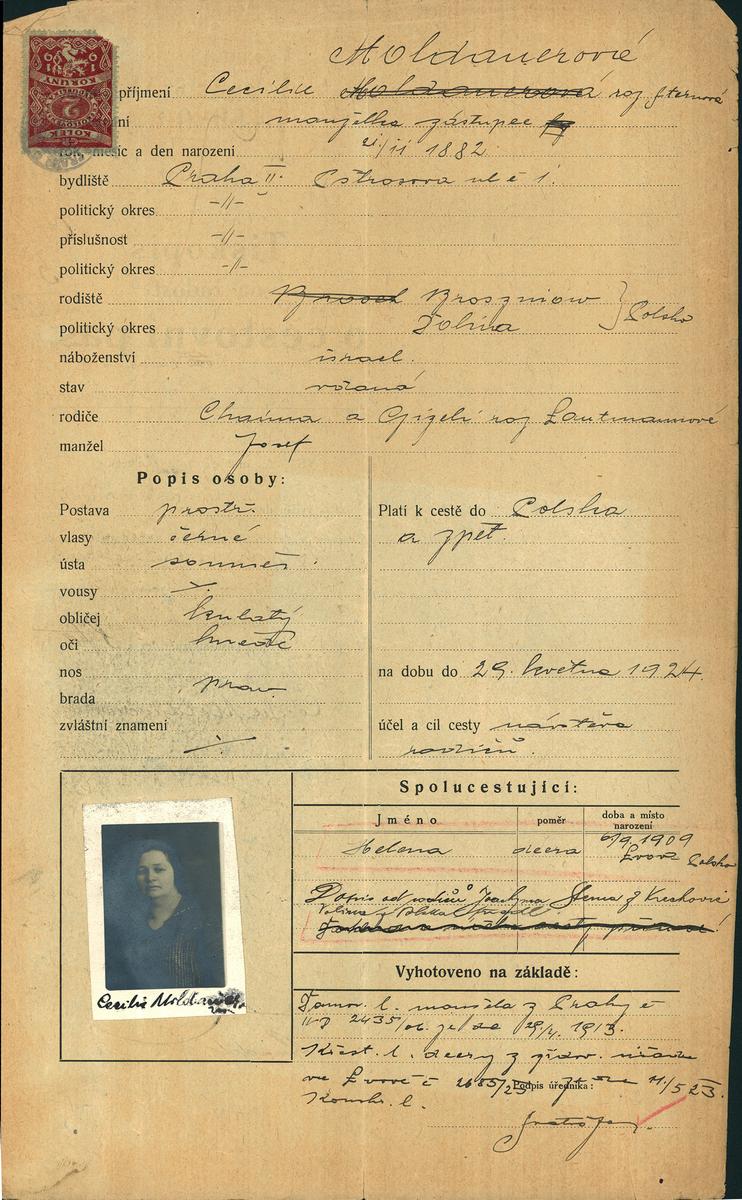 Moldauerové
příjmení Cecilie Moldauerová roz. Sternová
manželka zástupce
rok, měsíc a den narození 21/11 1882
bydliště Praha II. Ostrosova ul č 1.
politický okres -//-
příslušnost -//-
politický okres -//-
rodiště Broszniow
politický okres Dolina } Polsko
náboženství israel.
stav vdaná
rodiče Chaima a Gizeli roz Lautmannové
manžel Josef
Popis osoby:
Postava prostř.
vlasy černé
ústa souměr.
vousy
obličej kulatý
oči hnědé
nos
brada prav.
zvláštní znamení
Platí k cestě do Polska
a zpět.
na dobu do 29. května 1924.
účel a cil cesty návštěva
rodičů.
Spolucestující:
Jméno poměr doba a místo narození
Helena dcera 6/9 1909
Lvov Polsko
Dopis od rodičů Joachyma Sterna z
Vyhotoveno na základě:
Domov. l. manžela z Prahy
2435/06 ze dne 29/4. 1913.
Křest. l. dcery z židov.
ve Lvově č 2685/23 ze dne 11/5 23.
Podpis úředníka:
Cecilie Moldauer
KOLEK
2
KORUNY
1919